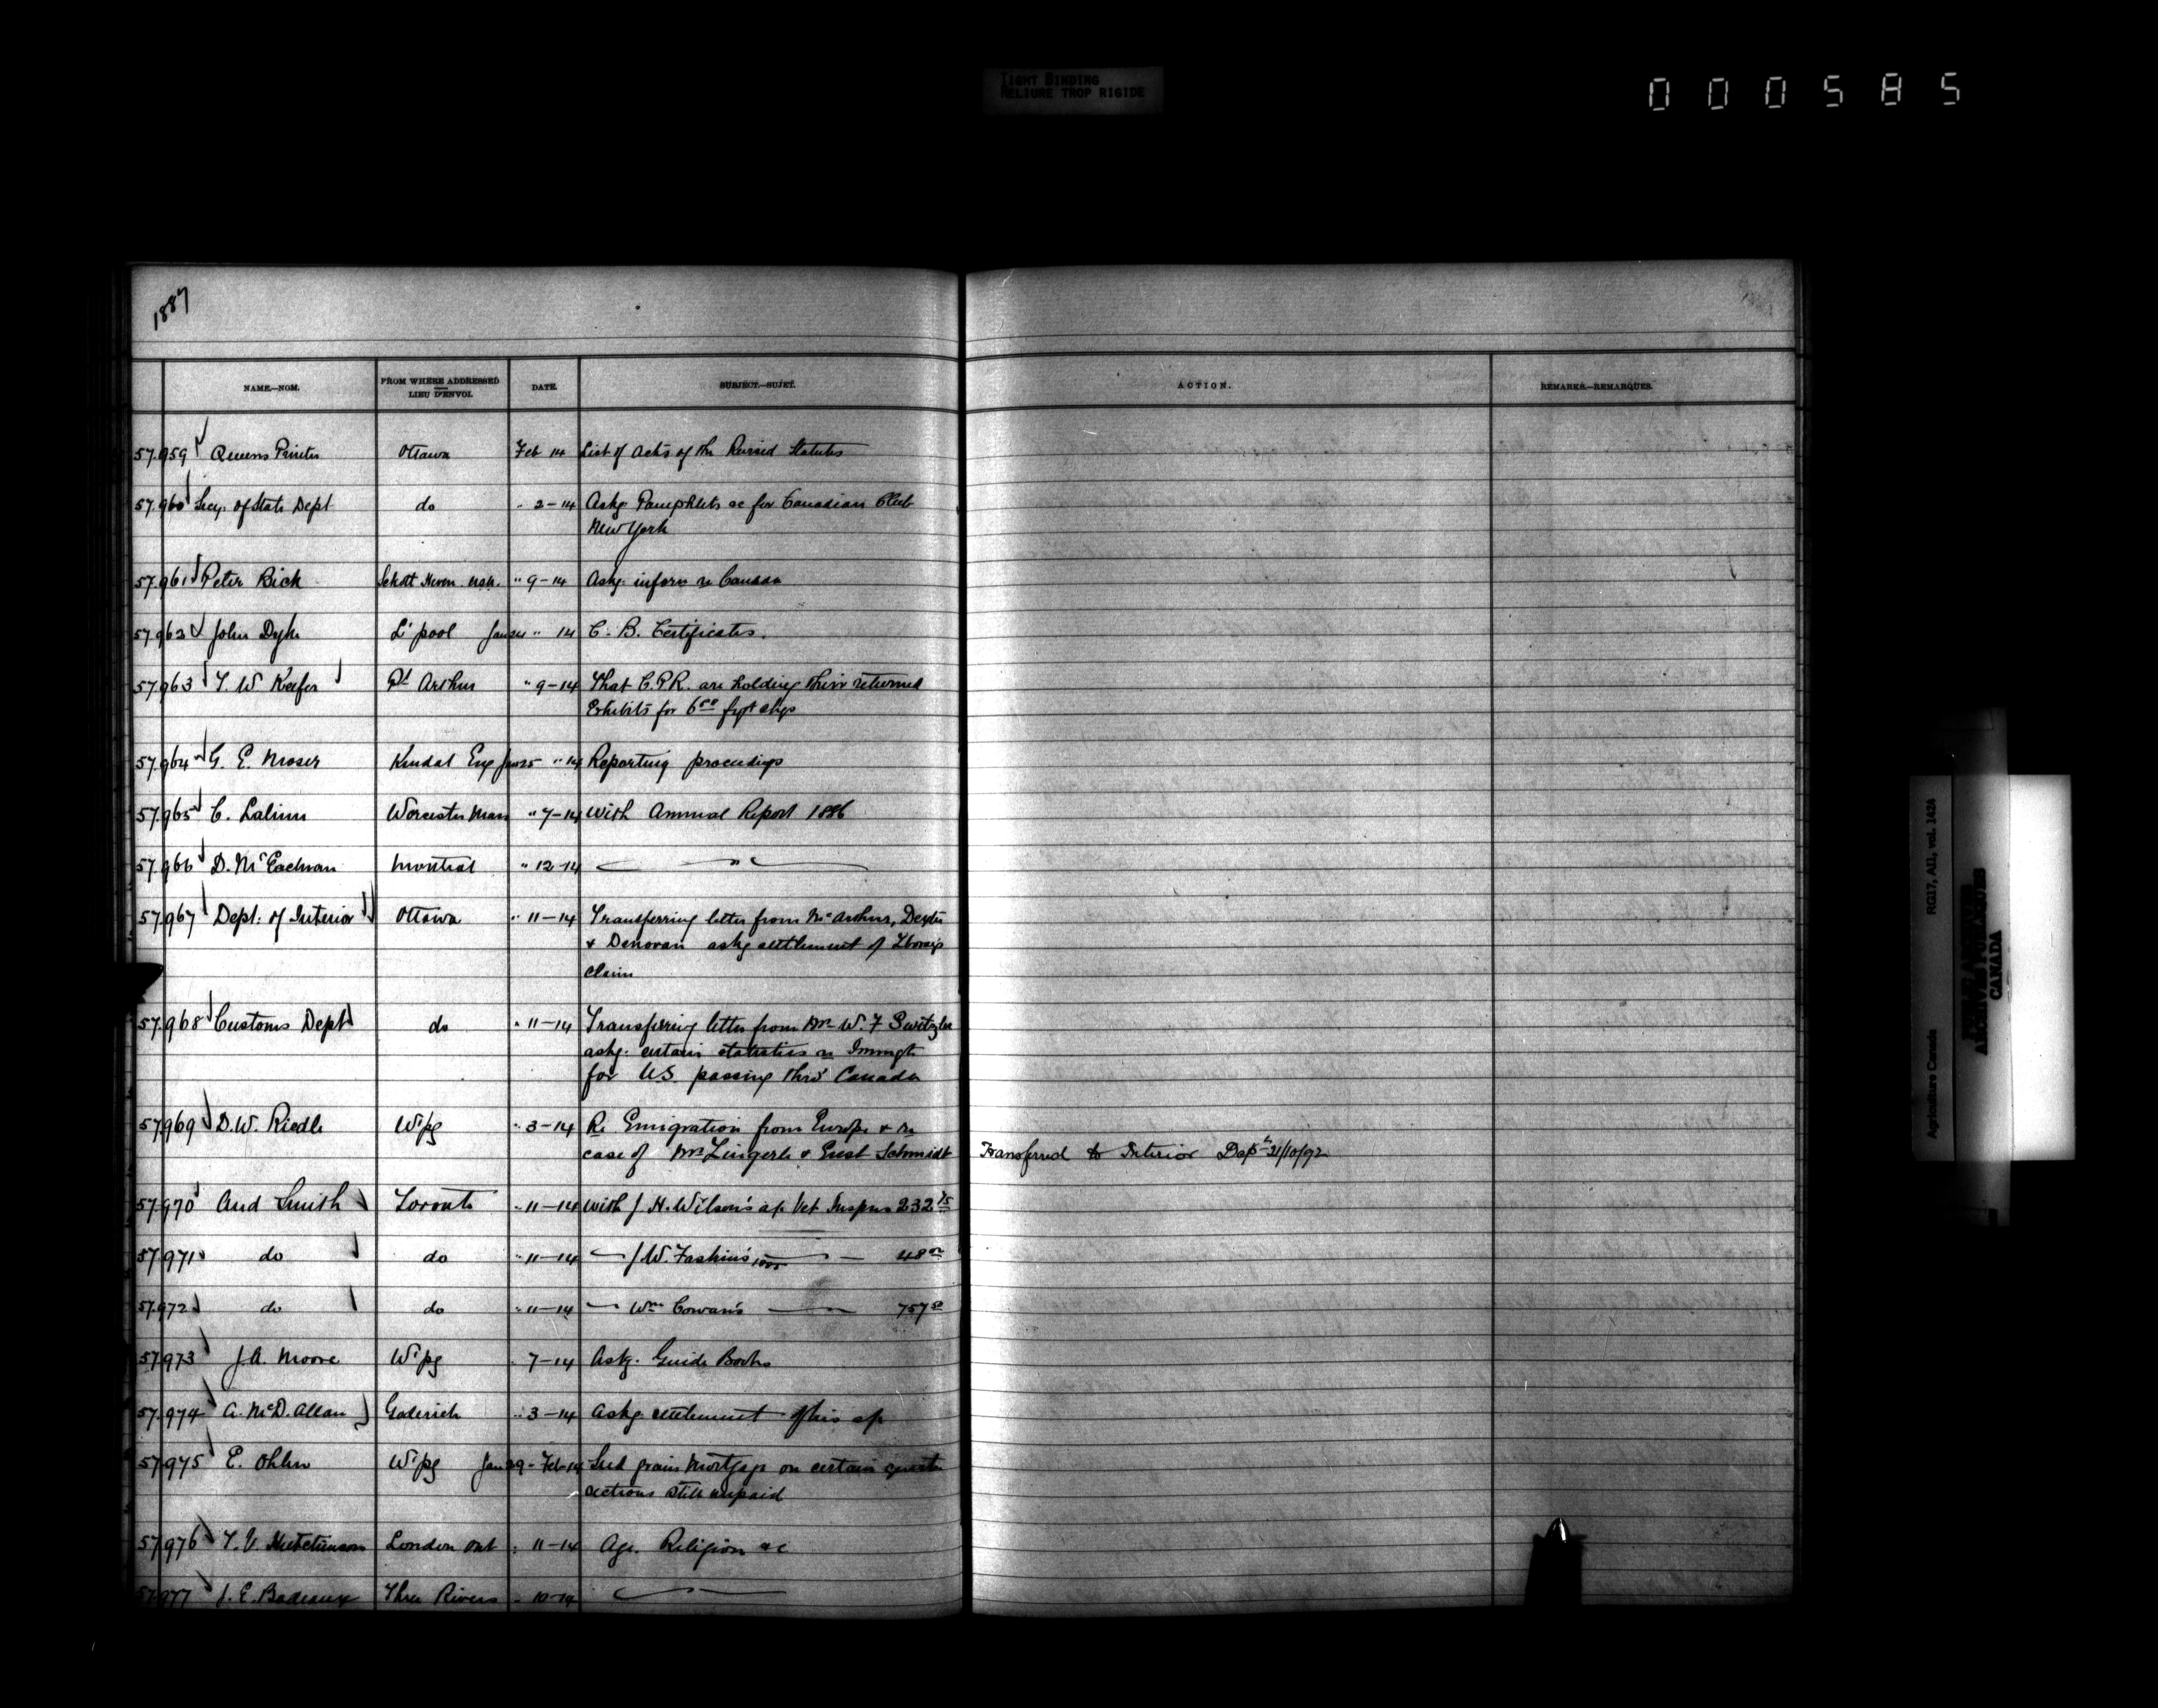 TIGHT BINDING
RELIURE TROP RIGIDE
000585
1887
NAME.—NOM. FROM WHERE ADDRESSED LIEU D'ENVOI. DATE. SUBJECT.—SUJET. ACTION. REMARKS.—REMARQUES.
57.959 Queens Printer Ottawa Feb 14 List of Acts of the Revised Statutes
57.960 Secy. of State Dept do " 2-14 Askg Pamphlets &c for Canadian Club
New York
57.961 Peter Bick " 9-14 Askg. inform re Canada
57.962 John Dyke L'pool Jan 24 " 14 C. B. Certificates.
57.963 T. W. Keefer Pt Arthur " 9-14 That C.P.R. are holding their returned
Exhibits for 6 50 frgt chgs
57.964 G. E. Moser Kendal Eng Jan 25 " 14 Reporting proceedings
57.965 C. Lalime Worcester Mass " 7-14 With Annual Report 1886
57.966 D. McEachran Montreal " 12-14 "
57.967 Dept. of Interior Ottawa " 11-14 Transferring letter from McArthur, Dexter
& Denovan askg settlement of
claim
57.968 Customs Dept do " 11-14 Transferring letter from Mr W. F Switzler
askg. certain statistics re Immgts
for U.S. passing thro' Canada
57.969 D.W. Riedle W'pg " 3-14 Re Emigration from Europe & re
case of Mrs Lingerle & Ernst Schmidt Transferred to Interior Dept 21/10/92
57.970 And Smith Toronto " 11-14 With J H. Wilson's a/c Vet Inspns 232 75
57.971 do do " 11-14 J W. Faskin's 48 00
57.972 do do " 11-14 Wm Cowan's 757 50
57.973 J.A. Moore W'pg " 7-14 Askg. Guide Books
57.974 A. McD. Allan Goderich " 3-14 Askg settlement of his a/c
57.975 E. Ohlen W'pg Jan 29-Feb 14 Seed grain Mortgage on certain quarter
sections still unpaid
57.976 T. V. Hutchinson London Ont " 11-14 Age. Religion &c
57.977 J. E. Badeaux Three Rivers " 10-14
Agriculture Canada RG17, AI1, vol. 1424
ARCHIVES
CANADA